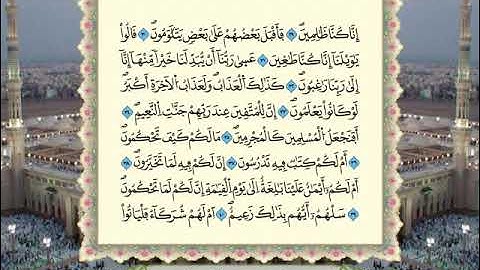 إِنَّا كُنَّا ظَٰلِمِينَ ۝٢٩ فَأَقْبَلَ بَعْضُهُمْ عَلَىٰ بَعْضٍ يَتَلَٰوَمُونَ ۝٣٠ قَالُوا۟
يَٰوَيْلَنَا إِنَّا كُنَّا طَٰغِينَ ۝٣١ عَسَىٰ رَبُّنَا أَنْ يُبَدِّلَنَا خَيْرًا مِنْهَا إِنَّا
إِلَىٰ رَبِّنَا رَٰغِبُونَ ۝٣٢ كَذَٰلِكَ الْعَذَابُ وَلَعَذَابُ الْآخِرَةِ أَكْبَرُ
لَوْ كَانُوا يَعْلَمُونَ ۝٣٣ إِنَّ لِلْمُتَّقِينَ عِنْدَ رَبِّهِمْ جَنَّٰتِ النَّعِيمِ ۝٣٤
أَفَنَجْعَلُ الْمُسْلِمِينَ كَالْمُجْرِمِينَ ۝٣٥ مَا لَكُمْ كَيْفَ تَحْكُمُونَ
۝٣٦ أَمْ لَكُمْ كِتَٰبٌ فِيهِ تَدْرُسُونَ ۝٣٧ إِنَّ لَكُمْ فِيهِ لَمَا تَخَيَّرُونَ ۝٣٨
أَمْ لَكُمْ أَيْمَٰنٌ عَلَيْنَا بَٰلِغَةٌ إِلَىٰ يَوْمِ الْقِيَٰمَةِ إِنَّ لَكُمْ لَمَا تَحْكُمُونَ
۝٣٩ سَلْهُمْ أَيُّهُمْ بِذَٰلِكَ زَعِيمٌ ۝٤٠ أَمْ لَهُمْ شُرَكَاءُ فَلْيَأْتُوا